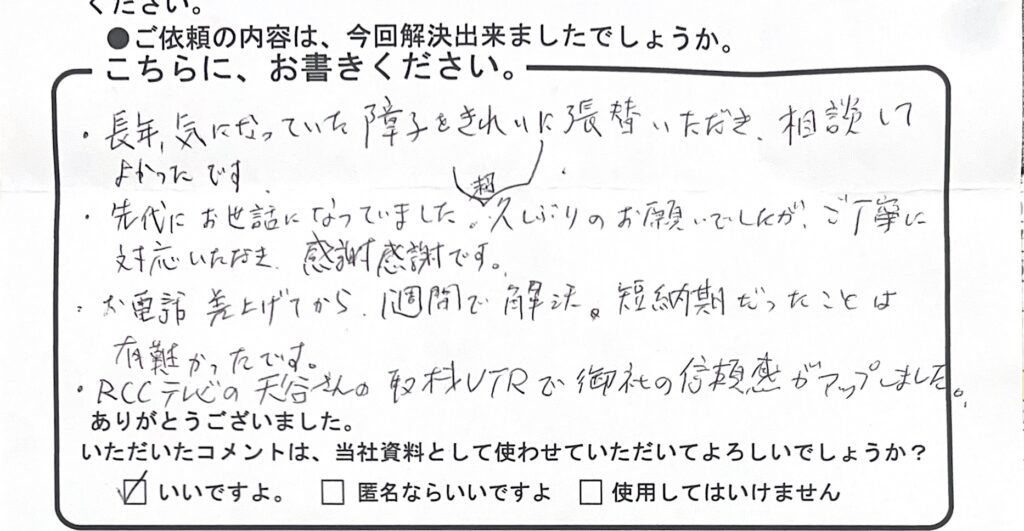 ください。
●ご依頼の内容は、今回解決出来ましたでしょうか。
こちらに、お書きください。
・長年,気になっていた障子をきれいに張替いただき、相談して
よかったです
超
・先代にお世話になっていました。久しぶりのお願いでしたが、ご丁寧に
対応いただき、感謝感謝です。
・お電話差上げてから、1週間で解決。短納期だったことは
有難かったです。
・RCCテレビの天谷さんの取材VTRで御社の信頼感がアップしました。
ありがとうございました。
いただいたコメントは、当社資料として使わせていただいてよろしいでしょうか?
☑ いいですよ。 □ 匿名ならいいですよ □ 使用してはいけません